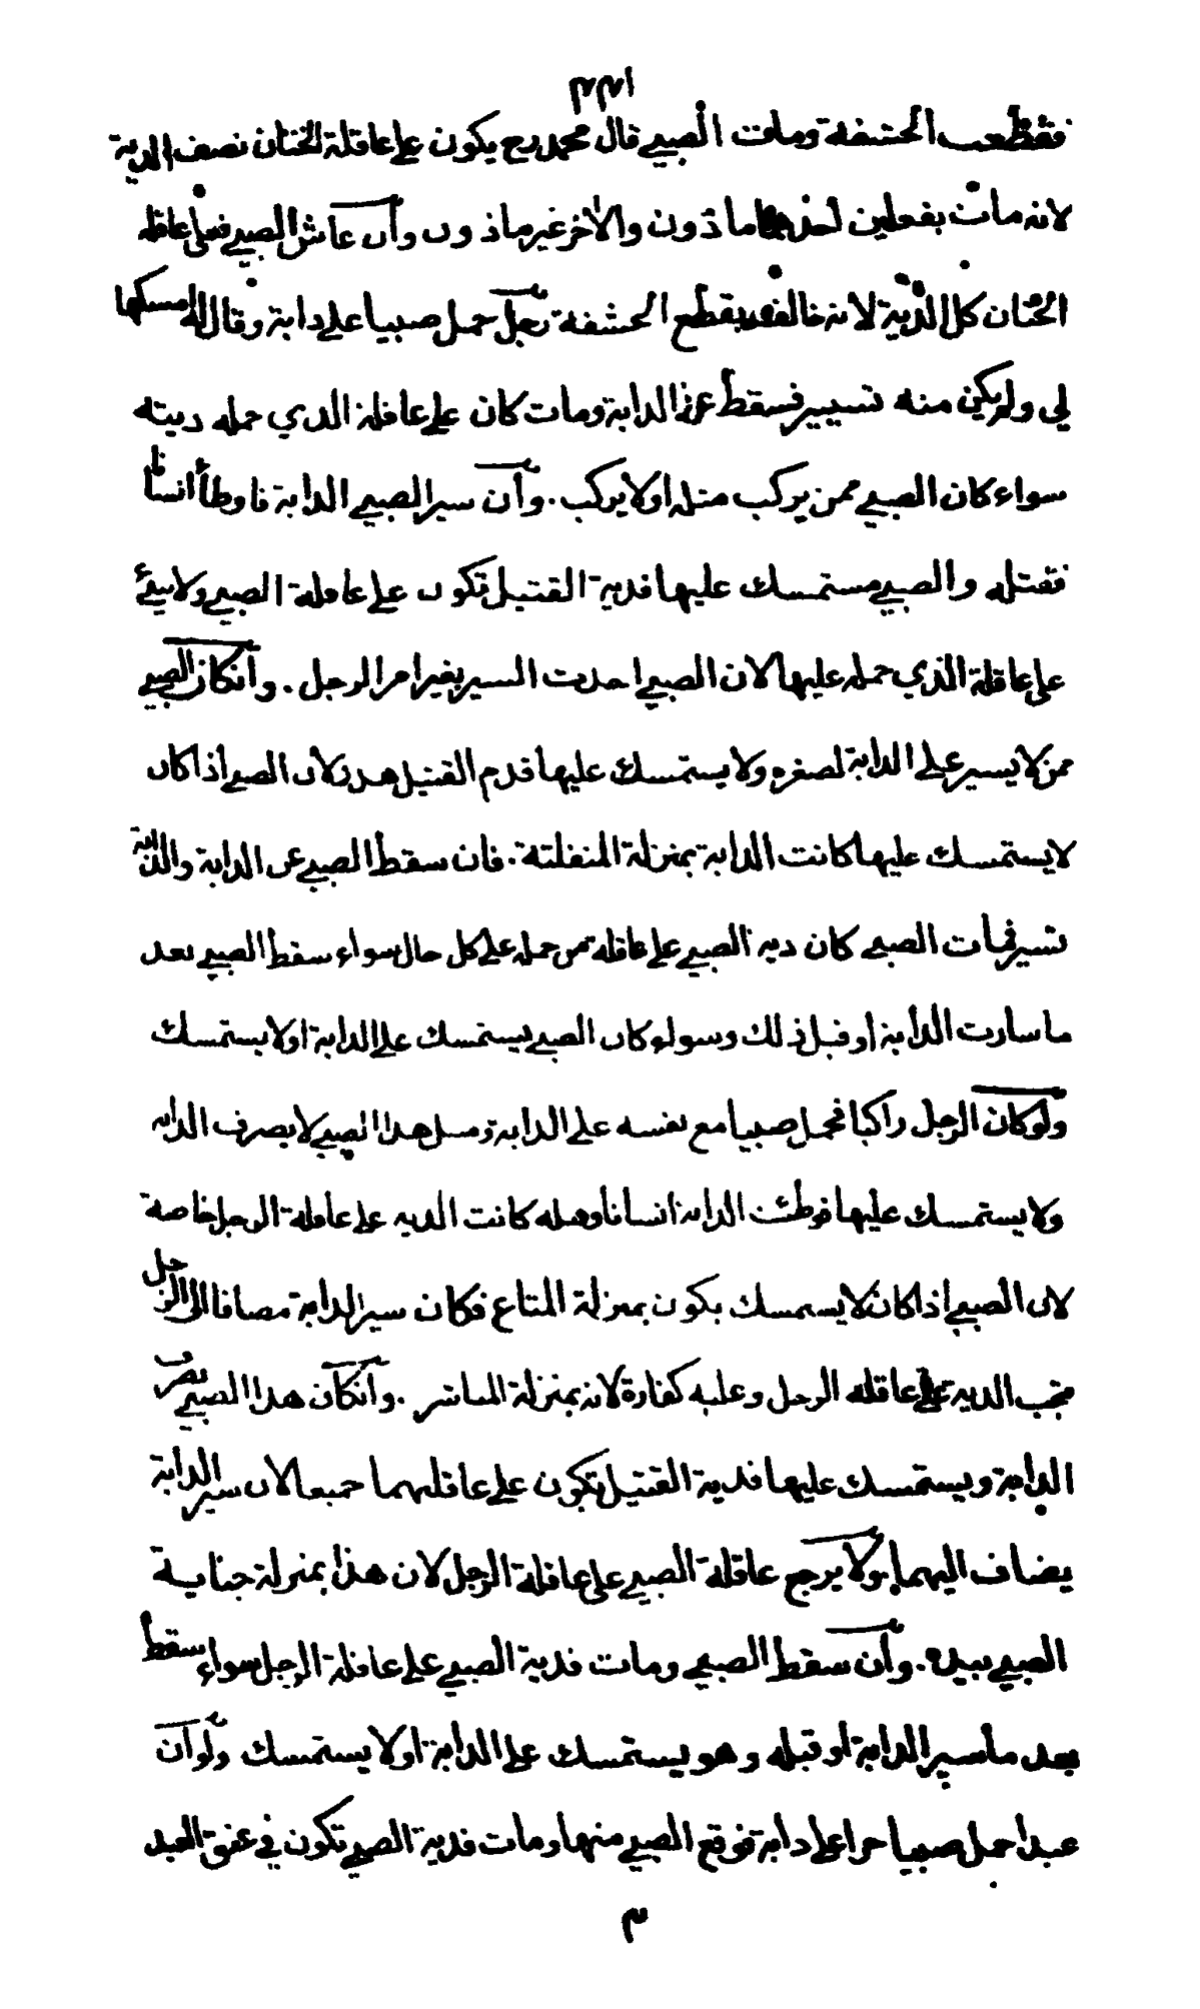 ٢٢١
فقطعت الحشفة ومات الصبي قال محمد رح يكون على عاقلة الختان نصف الدية
لانه مات بفعلين احدهما ماذون والاخر غير ماذون وان عاش الصبي فعلى عاقلة
الختان كل الدية لانه خالف بقطع الحشفة رجل حمل صبيا على دابة وقال له امسكها
لي ولم يكن منه تسيير فسقط عن الدابة ومات كان على عاقلة الذي حمله ديته
سواء كان الصبي ممن يركب مثله اولا يركب . وان سير الصبي الدابة فاوطأ انسانا
فقتله والصبي مستمسك عليها فدية القتيل تكون على عاقلة الصبي ولا شيء
على عاقلة الذي حمله عليها لان الصبي احدث السير بغير امر الرجل . وان كان الصبي
ممن لا يسير على الدابة لصغره ولا يستمسك عليها فدم القتيل هدر لان الصبي اذا كان
لا يستمسك عليها كانت الدابة بمنزلة المنفلتة . فان سقط الصبي عن الدابة والدابة
تسير فمات الصبي كان دية الصبي على عاقلة من حمله على كل حال سواء سقط الصبي بعد
ما سارت الدابة او قبل ذلك وسواء كان الصبي يستمسك على الدابة اولا يستمسك
ولو كان الرجل راكبا فحمل صبيا مع نفسه على الدابة ومثل هذا الصبي لا يصرف الدابة
ولا يستمسك عليها فوطئت الدابة انسانا وقتله كانت الدية على عاقلة الرجل خاصة
لان الصبي اذا كان لا يستمسك يكون بمنزلة المتاع فكان سير الدابة مضافا الى الرجل
فتجب الدية على عاقلة الرجل وعليه كفارة لانه بمنزلة المباشر . وان كان هذا الصبي يصرف
الدابة ويستمسك عليها فدية القتيل تكون على عاقلتهما جميعا لان سير الدابة
يضاف اليهما ولا يرجع عاقلة الصبي على عاقلة الرجل لان هذا بمنزلة جناية
الصبي بيده . وان سقط الصبي ومات فدية الصبي على عاقلة الرجل سواء سقط
بعد ما سير الدابة او قبله وهو يستمسك على الدابة اولا يستمسك ولو ان
عبدا حمل صبيا حرا على دابة فوقع الصبي منها ومات فدية الصبي تكون في عنق العبد
٣